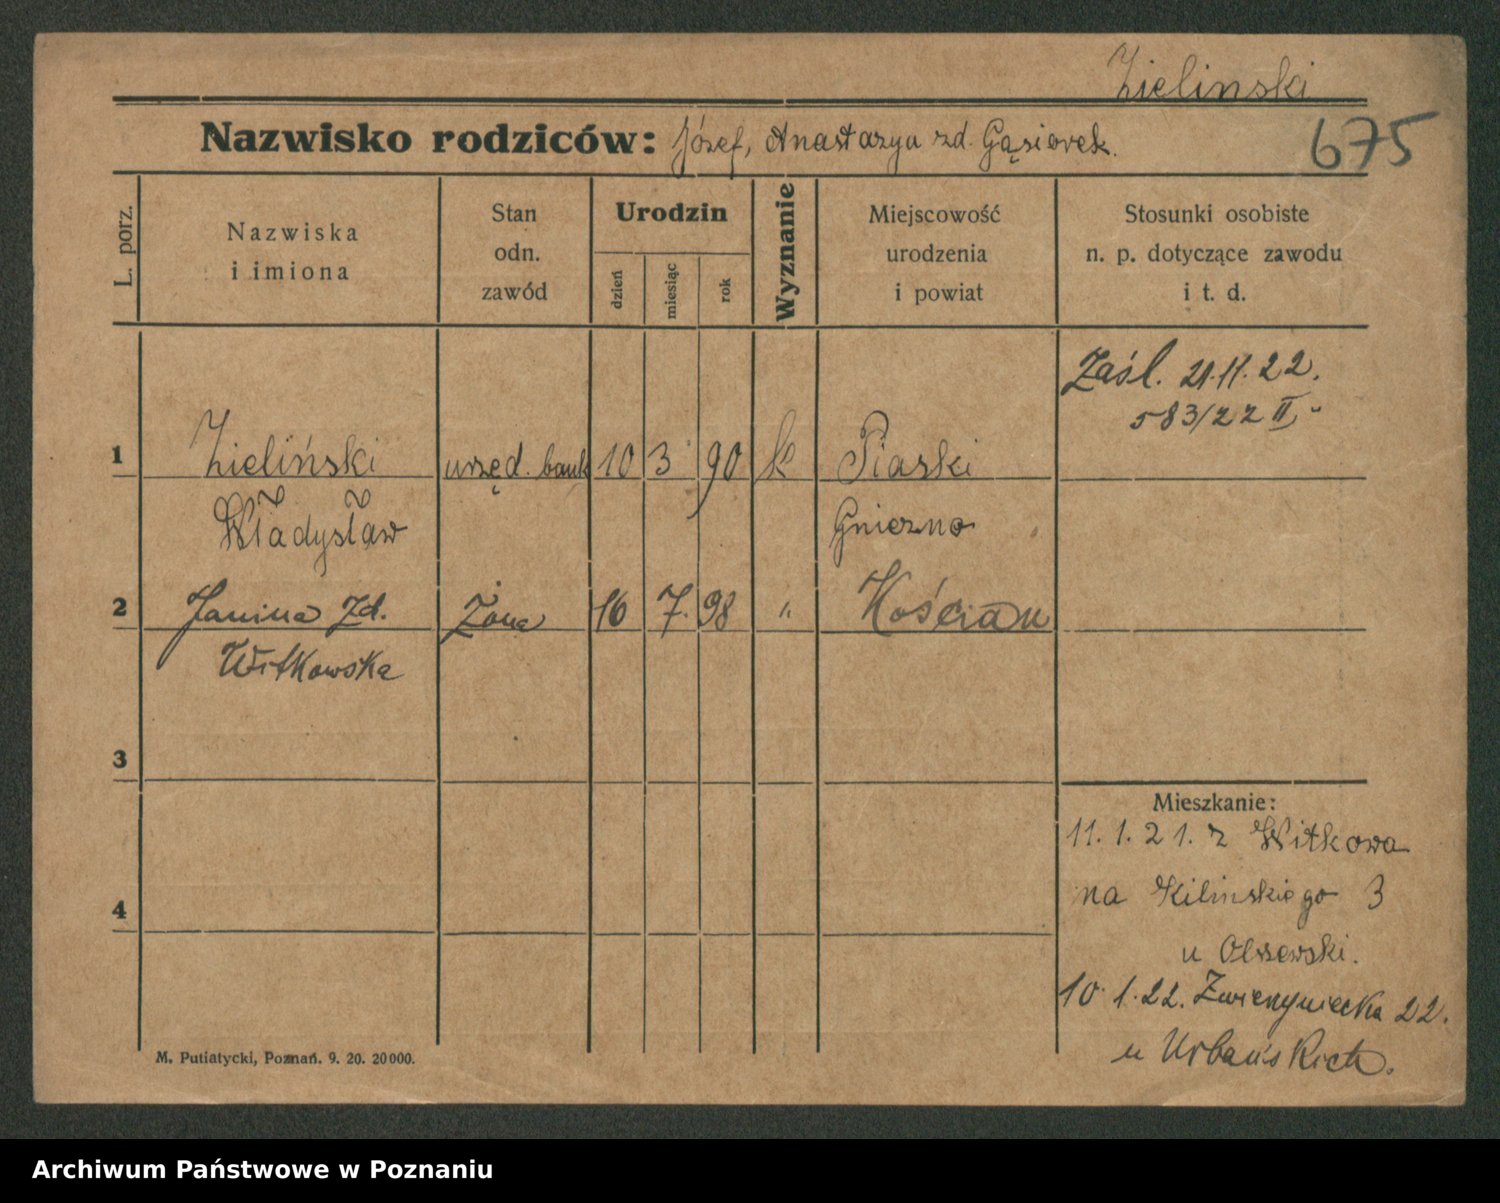 Zielinski
675
Nazwisko rodziców: Józef, Anastazya zd. Gąsiorek.
L. porz.
Nazwiska
i imiona
Stan
odn.
zawód
Urodzin
dzień
miesiąc
rok
Wyznanie
Miejscowość
urodzenia
i powiat
Stosunki osobiste
n. p. dotyczące zawodu
i t. d.
Zaśl. 21.11.22.
583/22 II
1 Zieliński urzęd. bank 10 3 90 k Piaski
Władysław Gniezno
2 Janina Zd. Żona 16 7. 98 " Kościan
Witkowska
3
4
Mieszkanie:
11. 1. 21. z Witkowa
na Kilinskiego 3
u Olszewski.
10. 1. 22. Zwierzyniecka 22.
u Urbańskich.
M. Putiatycki, Poznań. 9. 20. 20000.
Archiwum Państwowe w Poznaniu